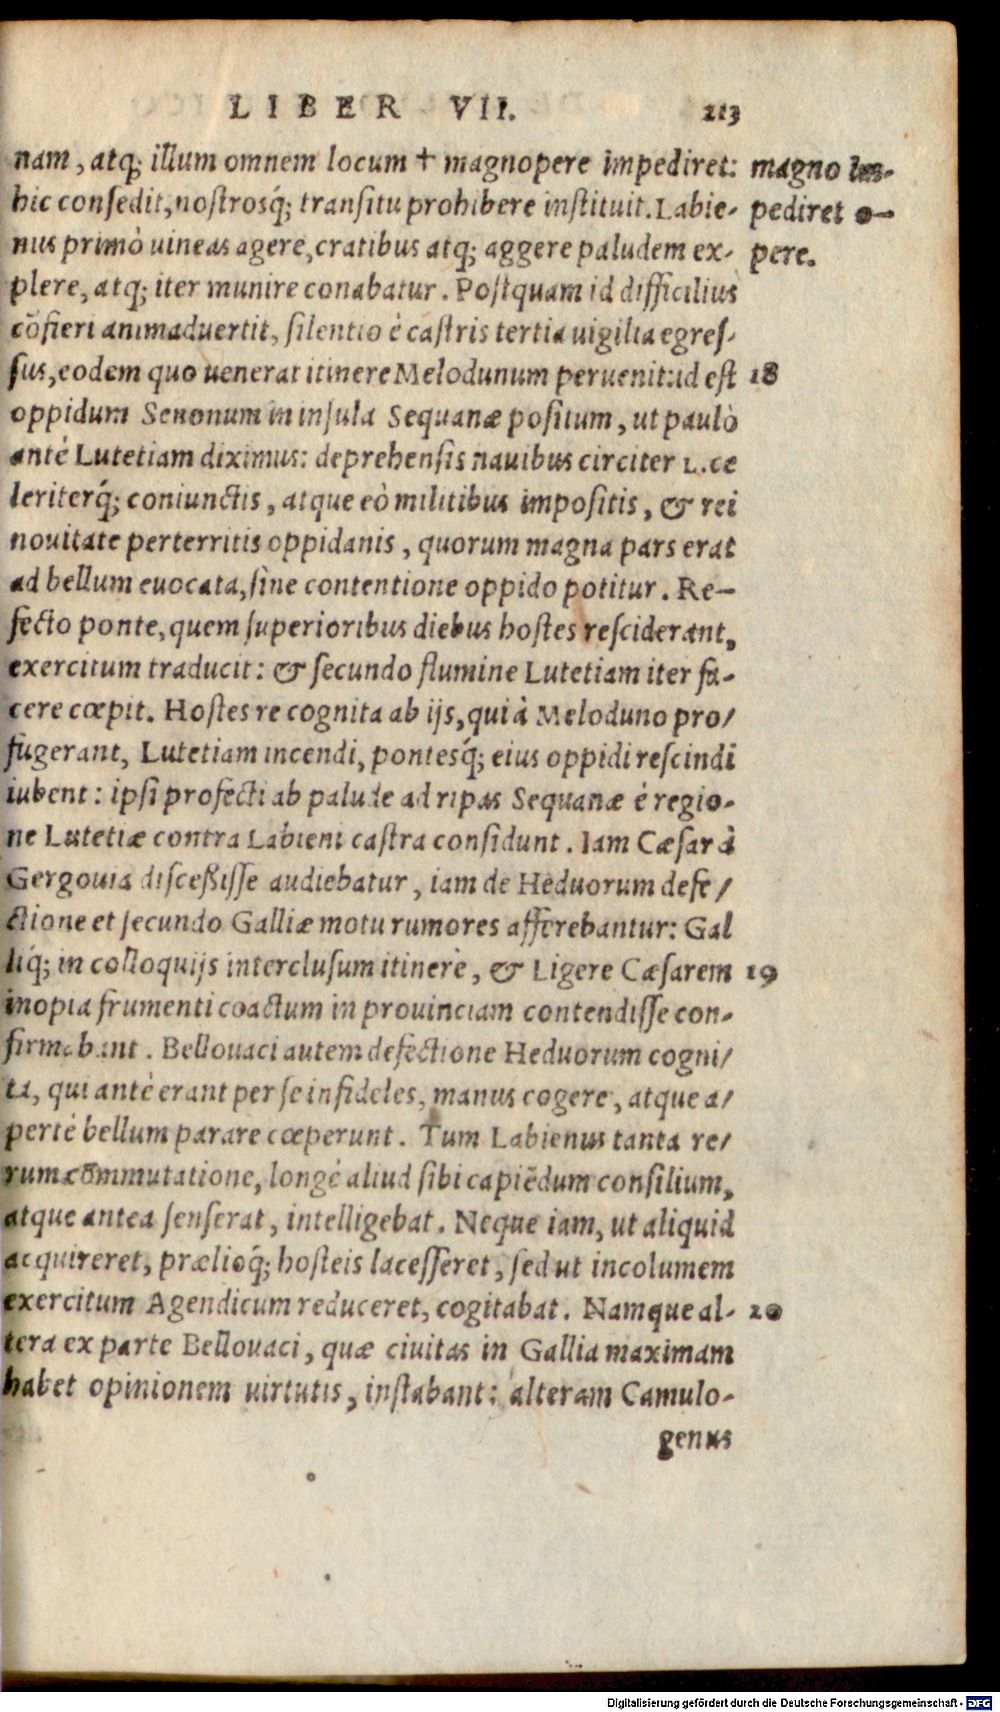 LIBER VII. 213
nam, atq; illum omnem locum + magnopere impediret: magno im-
hic consedit, nostrosq́; transitu prohibere instituit. Labie- pediret o-
nus primò uineas agere, cratibus atq; aggere paludem ex- pere.
plere, atq; iter munire conabatur. Postquam id difficilius
cõfieri animaduertit, silentio è castris tertia uigilia egres-
sus, eodem quo uenerat itinere Melodunum peruenit: id est 18
oppidum Senonum in insula Sequanæ positum, ut paulò
antè Lutetiam diximus: deprehensis nauibus circiter L. ce
leriterq́; coniunctis, atque eò militibus impositis, & rei
nouitate perterritis oppidanis, quorum magna pars erat
ad bellum euocata, sine contentione oppido potitur. Re-
fecto ponte, quem superioribus diebus hostes resciderant,
exercitum traducit: & secundo flumine Lutetiam iter fa-
cere cœpit. Hostes re cognita ab ijs, qui à Meloduno pro/
fugerant, Lutetiam incendi, pontesq́; eius oppidi rescindi
iubent: ipsi profecti ab palude ad ripas Sequanæ è regio-
ne Lutetiæ contra Labieni castra considunt. Iam Cæsar à
Gergouia disceßisse audiebatur, iam de Heduorum defe/
ctione et secundo Galliæ motu rumores afferebantur: Gal
liq́; in colloquijs interclusum itinere, & Ligere Cæsarem 19
inopia frumenti coactum in prouinciam contendisse con-
firmabant. Bellouaci autem defectione Heduorum cogni/
ta, qui antè erant per se infideles, manus cogere, atque a/
pertè bellum parare cœperunt. Tum Labienus tanta re/
rum cõmmutatione, longè aliud sibi capiẽdum consilium,
atque antea senserat, intelligebat. Neque iam, ut aliquid
acquireret, prælioq́; hosteis lacesseret, sed ut incolumem
exercitum Agendicum reduceret, cogitabat. Namque al- 20
tera ex parte Bellouaci, quæ ciuitas in Gallia maximam
habet opinionem uirtutis, instabant: alteram Camulo-
genus
Digitalisierung gefördert durch die Deutsche Forschungsgemeinschaft - DFG